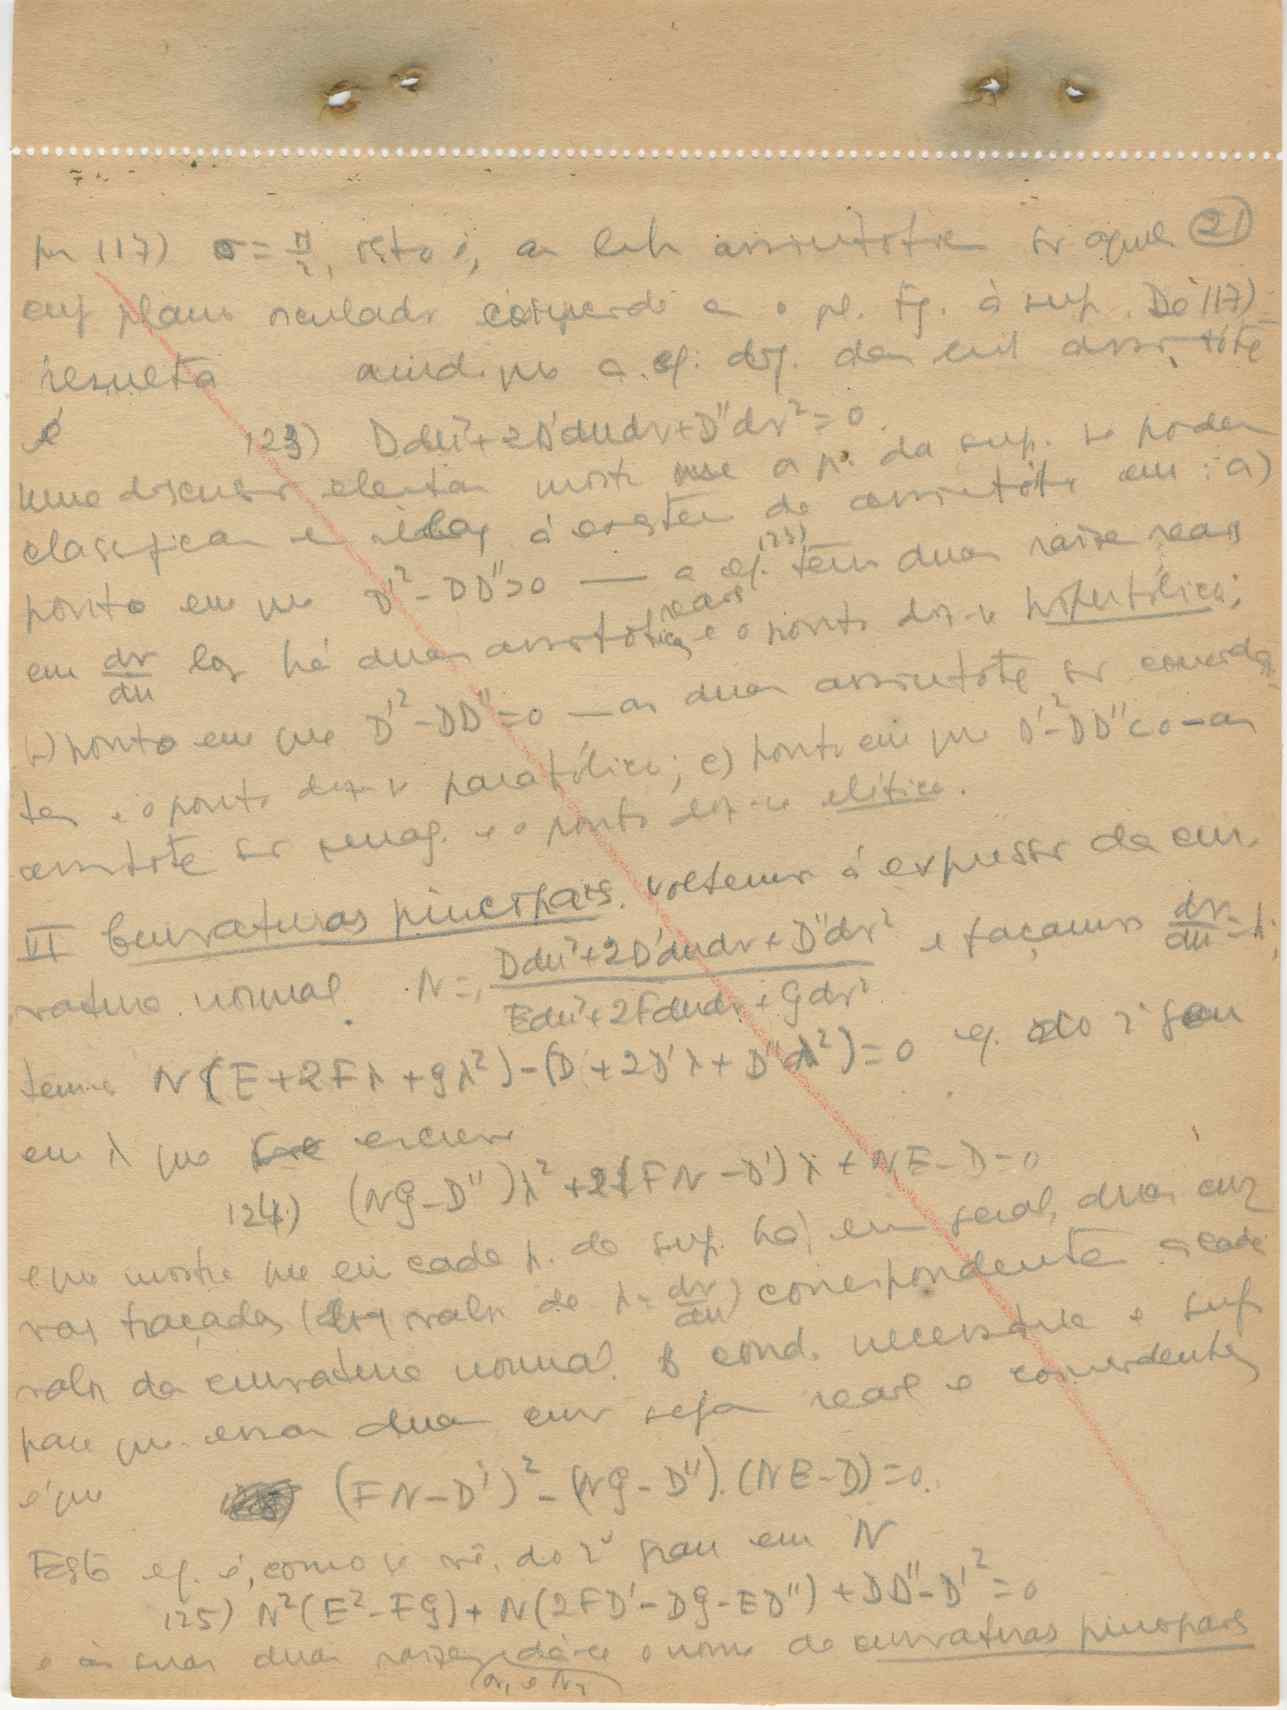 por 117) σ = π/2, isto é, as linh assintóticas são aquelas (21)
cuj plano osculador coincide com o pl. tg. à sup. De 117)
resulta ainda que a eq. dif. das curv assintót
é 123) Ddu²+2D'dudv+D''dv²=0.
Uma discussão elementar mostra que os p. da sup. se podem
classificar em relaç à existên de assintót em: a)
ponto em que D'²-DD''>0 — a eq. (123) tem duas raízes reais
em dv/du log há duas assintóticas reais e o ponto diz-se hiperbólico;
b) ponto em que D'²-DD''=0 — as duas assintót são coinciden
tes e o ponto diz-se parabólico; c) ponto em que D'²-DD''<0 — as
assintót são imag. e o ponto diz-se elítico.
VI Curvaturas principais. Voltemos à expressão da cur
vatura normal N = Ddu²+2D'dudv+D''dv² / Edu²+2Fdudv+Gdv² e façamos dv/du=λ;
temos N(E+2Fλ+Gλ²)-(D+2D'λ+D''λ²)=0 eq. do 2º grau
em λ que escrever
124) (NG-D'')λ²+2(FN-D')λ+NE-D=0
e que mostra que em cada p. da sup. há, em geral, duas cur
vas traçadas (valor de λ=dv/du) correspondentes a cada
valor da curvatura normal. A cond. necessária e suf
para que essas duas curv sejam reais e coincidentes
é que (FN-D')²-(NG-D'').(NE-D)=0.
Esta eq. é, como se vê, do 2º grau em N
125) N²(E²-FG)+N(2FD'-DG-ED'')+DD''-D'²=0
e às suas duas raízes (N₁ e N₂) dá-se o nome de curvaturas principais